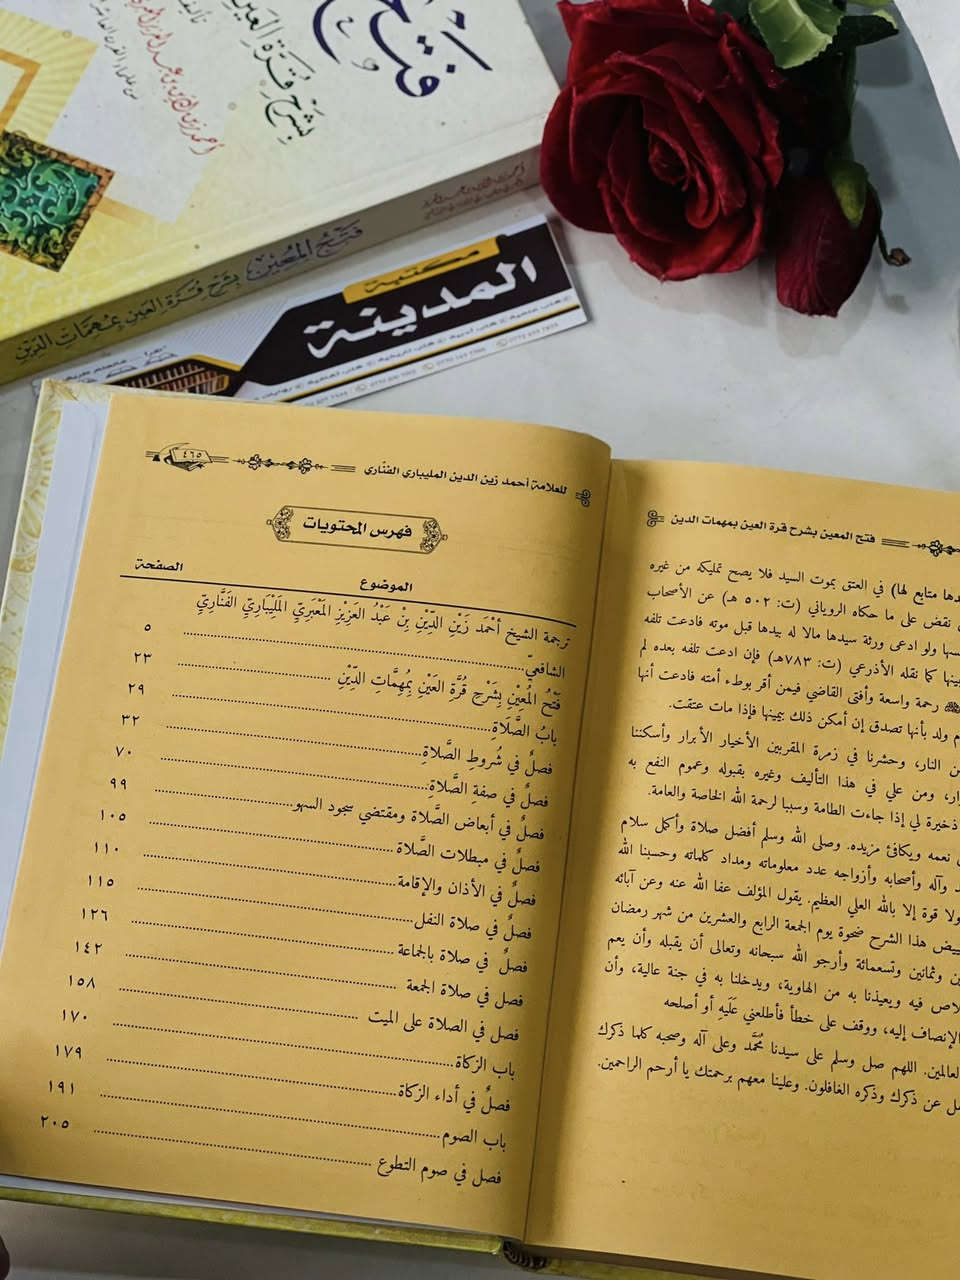 فتح
بشرح قرة العين
تأليف
فتح المعين بشرح قرة العين بمهمات الدين
مكتبة
المدينة
٤٦٥
للعلامة أحمد زين الدين المليباري الفناري
فهرس المحتويات
الموضوع الصفحة
ترجمة الشيخ أَحْمَد زَيْنِ الدِّيْنِ بِنْ عَبْدُ العَزِيْزِ المَعْبَرِيّ المَلِيْبَارِيّ الفَنَّارِيّ
الشافعيّ ..... ٥
فَتْحُ المُعِيْنِ بِشَرْحِ قُرَّةِ العَيْنِ بِمُهِمَّاتِ الدِّيْنِ ..... ٢٣
بابُ الصَّلَاةِ ..... ٢٩
فصلٌ في شُروطِ الصَّلاةِ ..... ٣٢
فصلٌ في صفةِ الصَّلاةِ ..... ٧٠
فصلٌ في أبعاض الصَّلاة ومقتضي سجود السهو ..... ٩٩
فصلٌ في مبطلات الصَّلاة ..... ١٠٥
فصلٌ في الأذان والإقامة ..... ١١٠
فصلٌ في صلاة النفل ..... ١١٥
فصلٌ في صلاة بالجماعة ..... ١٢٦
فصل في صلاة الجمعة ..... ١٤٢
فصل في الصلاة على الميت ..... ١٥٨
باب الزكاة ..... ١٧٠
فصلٌ في أداء الزكاة ..... ١٧٩
باب الصوم ..... ١٩١
فصل في صوم التطوع ..... ٢٠٥
فتح المعين بشرح قرة العين بمهمات الدين
متابع لها) في العتق بموت السيد فلا يصح تمليكه من غيره
نقض على ما حكاه الروياني (ت: ٥٠٢ هـ) عن الأصحاب
ولو ادعى ورثة سيدها مالا له بيدها قبل موته فادعت تلفه
كما نقله الأذرعي (ت: ٧٨٣هـ) فإن ادعت تلفه بعده لم
رحمة واسعة وأفتى القاضي فيمن أقر بوطء أمته فادعت أنها
ولد بأنها تصدق إن أمكن ذلك بيمينها فإذا مات عتقت.
من النار، وحشرنا في زمرة المقربين الأخيار الأبرار وأسكننا
ومن علي في هذا التأليف وغيره بقبوله وعموم النفع به
ذخيرة لي إذا جاءت الطامة وسببا لرحمة الله الخاصة والعامة.
نعمه ويكافئ مزيده. وصلى الله وسلم أفضل صلاة وأكمل سلام
وآله وأصحابه وأزواجه عدد معلوماته ومداد كلماته وحسبنا الله
ولا قوة إلا بالله العلي العظيم. يقول المؤلف عفا الله عنه وعن آبائه
هذا الشرح ضحوة يوم الجمعة الرابع والعشرين من شهر رمضان
وثمانين وتسعمائة وأرجو الله سبحانه وتعالى أن يقبله وأن يعم
فيه ويعيذنا به من الهاوية، ويدخلنا به في جنة عالية، وأن
الإنصاف إليه، ووقف على خطأ فأطلعني عَلَيهِ أو أصلحه
العالمين. اللهم صل وسلم على سيدنا مُحَمَّد وعلى آله وصحبه كلما ذكرك
عن ذكرك وذكره الغافلون. وعلينا معهم برحمتك يا أرحم الراحمين.